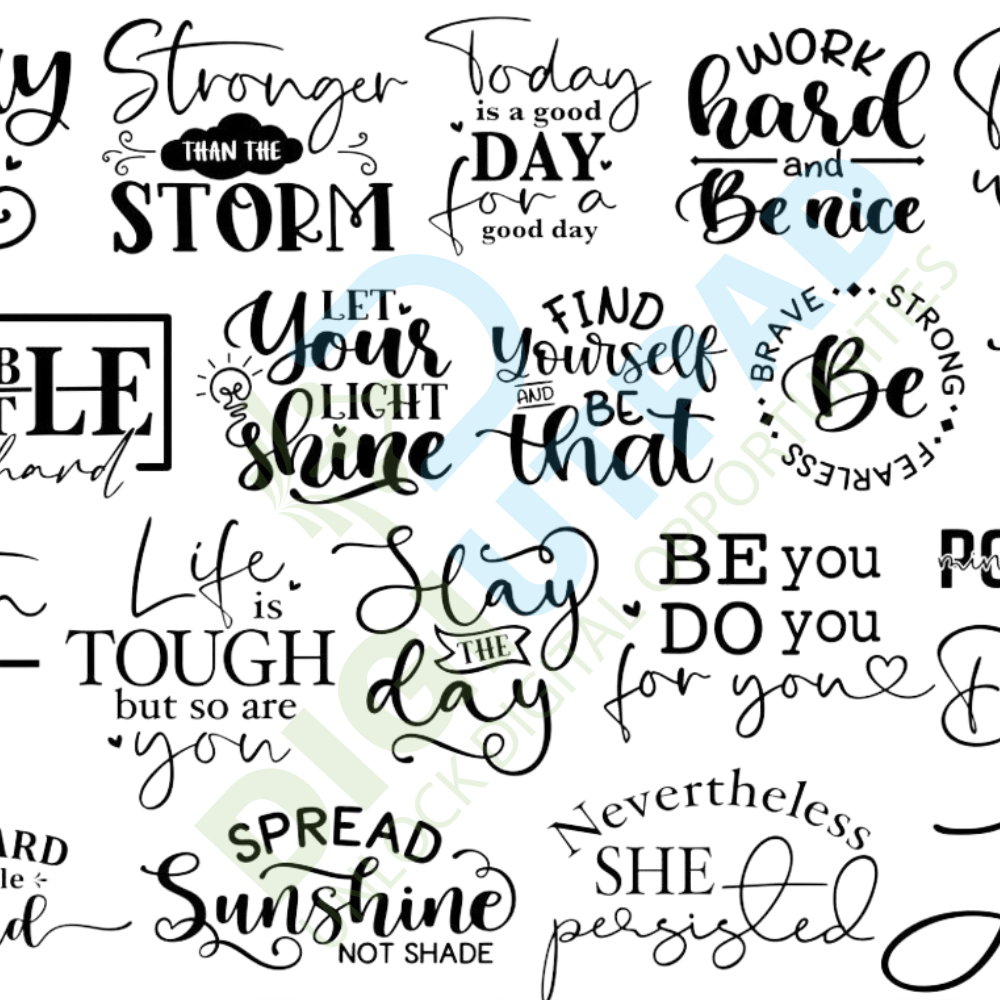 Stronger
THAN THE
STORM
Today
is a good
DAY
for a
good day
WORK
hard
and
Be nice
LET
Your
LIGHT
shine
FIND
Yourself
AND
BE
that
BRAVE
STRONG
FEARLESS
Be
LE
hard
Life
is
TOUGH
but so are
you
Slay
THE
day
BE you
DO you
for you
PO
ARD
le
SPREAD
Sunshine
NOT SHADE
Nevertheless
SHE
persisted
UNLOCK DIGITAL OPPORTUNITIES